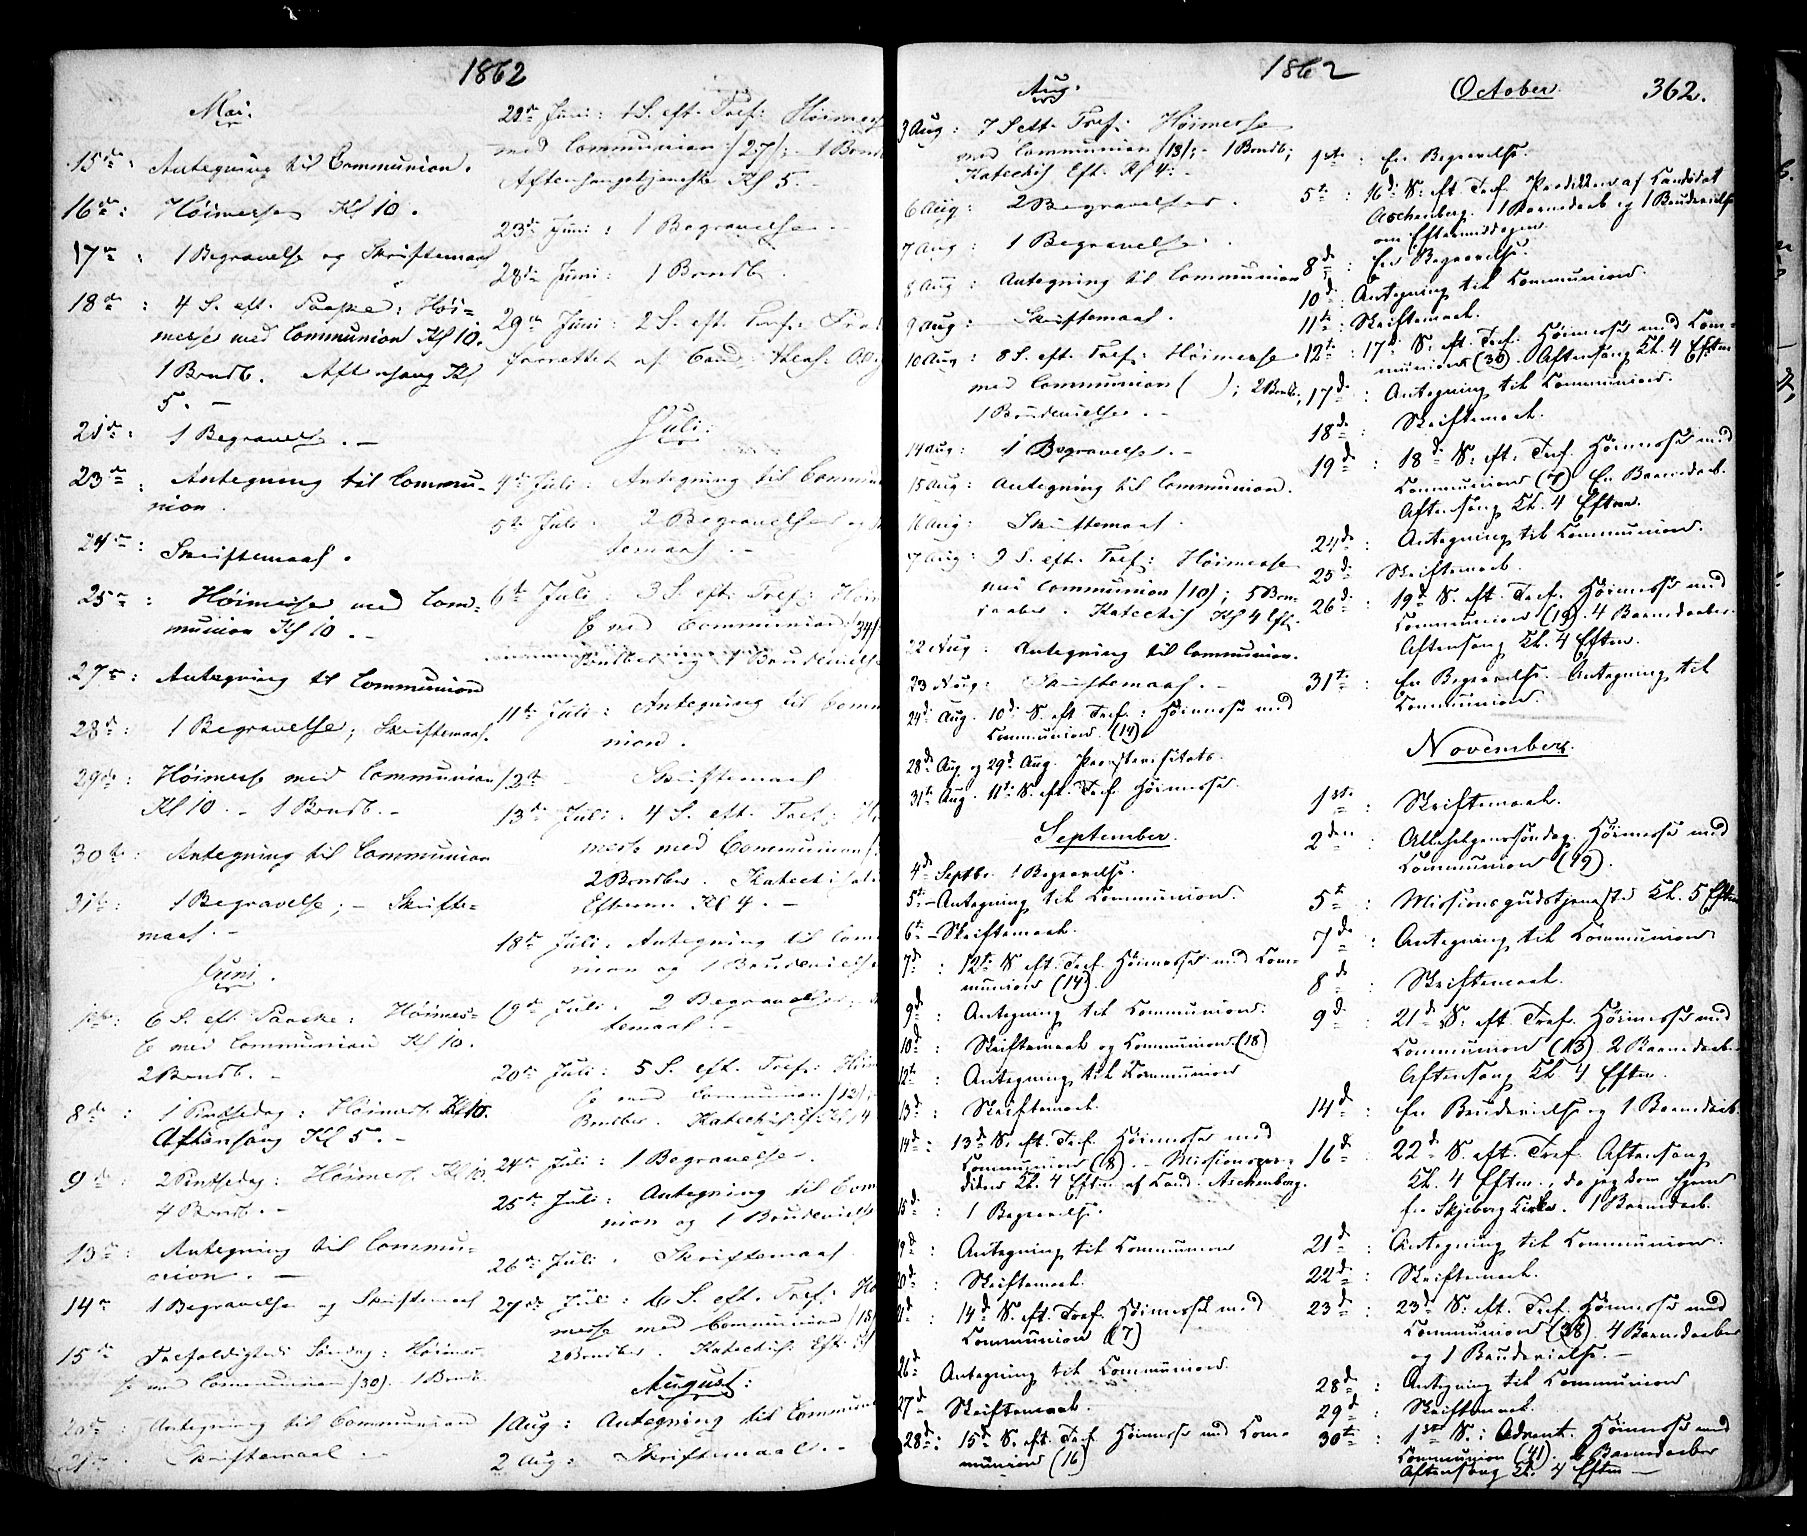 1862
Mai.
15de: Antegning til Communion.
16de: Høimesse Kl 10.
17de: 1 Begravelse og Skriftemaal
18de: 4 S. eft. Paaske: Høi-
messe med Communion Kl 10.
1 Barndb. Aftensang Kl
5. —
21de: 1 Begravelse. —
23de: Antegning til Commu-
nion.
24de: Skriftemaal.
25de: Høimesse med Com-
munion Kl 10. —
27de: Antegning til Communion
28de: 1 Begravelse; Skriftemaal.
29de: Høimesse med Communion
Kl 10. — 1 Barndb. —
30te: Antegning til Communion
31te: 1 Begravelse; — Skrifte-
maal. —
Juni.
1ste: 6 S. eft. Paaske: Høimes-
se med Communion Kl 10.
2 Barndb. —
8de: 1 Pintsedag: Høimesse Kl 10.
Aftensang Kl 5. —
9de: 2 Pintsedag: Høimesse Kl 10.
4 Barndb. —
13de: Antegning til Commu-
nion. —
14de: 1 Begravelse og Skriftemaal
15de: Trefoldigheds Søndag: Høimes-
se med Communion (30). 1 Barndb.
20de: Antegning til Communion
21de: Skriftemaal —
22de Juni: 1 S. eft. Tref: Høimesse
med Communion (27); — 1 Barndb
Aftensangstjeneste Kl 5. —
23de Juni: 1 Begravelse. —
28de Juni: 1 Barndb.
29de Juni: 2 S. eft. Tref:
forrettet af Cand. theol:
Juli.
4de Juli: Antegning til Commun
5te Juli: 2 Begravelser og
temaal. —
6te Juli: 3 S. eft. Tref: Høim
se med Communion (34)
Barndber og 1 Brudevielse
11te Juli: Antegning til Comm
nion.
12te — Skriftemaal
13de Juli: 4 S. eft. Tref:
messe med Communion
2 Barndber. Katechisat
Efterm Kl 4. —
18de Juli: Antegning til Com
nion og 1 Brudevielse
19de Juli. 2 Begravelser,
temaal. —
20de Juli: 5 S. eft. Tref: Høim
se med Communion (12)
Barndber. Katechis: Eft: Kl 4
24de Juli: 1 Begravelse.
25de Juli: Antegning til Com
nion og 1 Brudevielse
26de Juli. Skriftemaal
27de Juli: 6 S. eft. Tref:
messe med Communion
2 Barndber. Katechis: Eft: Kl
August:
1 Aug: Antegning til Commun
2 Aug: Skriftemaal. —
1862
362.
Aug.
3 Aug: 7 S eft. Tref: Høimesse
med Communion (13); — 1 Barndb;
Katechis Eft. Kl 4: —
6 Aug: 2 Begravelser.
7 Aug: 1 Begravelse.
8 Aug: Antegning til Communion
9 Aug: Skriftemaal.
10 Aug: 8 S. eft. Tref: Høimesse
med Communion ( ); 2 Barndb,
1 Brudevielse. —
14 Aug: 1 Begravelse. —
15 Aug: Antegning til Communion.
16 Aug: Skriftemaal.
17 Aug: 9 S. eft. Tref: Høimesse
med Communion (10); 5 Barn-
daaber. Katechis Kl 4 Eft.
22 Aug: Antegning til Communion.
23 Aug: Skriftemaal. —
24de Aug. 10de S. eft Tref.: Høimesse med
Communion. (14)
28de Aug og 29de Aug. Provstevisitats.
31te Aug. 11te S. eft. Tref. Høimesse.
September.
4de Septbr 1 Begravelse.
5te — Antegning til Communion.
6te — Skriftemaal.
7de: 12te S. eft Tref. Høimesse med Com-
munion (14).
9de: Antegning til Communion.
10de: Skriftemaal og Communion (18)
12te: Antegning til Communion
13de: Skriftemaal.
14de: 13de S. eft. Tref. Høimesse med
Communion (8). — Missionspræ-
diken Kl. 4 Eftm af Cand. Aschenberg.
15de: 1 Begravelse.
19de: Antegning til Communion
20de: Skriftemaal.
21de: 14de S. eft. Tref. Høimesse med
Communion (7)
26de Antegning til Communion.
27de Skriftemaal.
28de: 15de S. eft Tref. Høimesse med Com-
munion (16)
October.
1ste: En Begravelse.
5te: 16de S. eft Tref. Prædiken af Candidat
Aschenberg. 1 Barnedaab og 1 Brudevielse
om Eftermiddagen.
8de: En Begravelse.
10de: Antegning til Communion.
11te: Skriftemaal.
12te: 17de S. eft. Tref. Høimesse med Com-
munion (30). Aftensang Kl. 4 Eftm
17de: Antegning til Communion.
18de: Skriftemaal.
19de: 18de S. eft. Tref. Høimesse med
Communion (7) En Barnedaab.
Aftensang Kl. 4 Eftm.
24de: Antegning til Communion.
25de Skriftemaal.
26de: 19de S. eft. Tref. Høimesse med
Communion (19). 4 Barnedaaber
Aftensang Kl. 4 Eftm.
31te: En Begravelse. — Antegning til
Communion.
November.
1ste: Skriftemaal.
2den: Allehelgenssöndag. Høimesse med
Communion (19).
5te: Missionsgudstjeneste Kl. 5 Eftm
7de: Antegning til Communion
8de: Skriftemaal.
9de: 21de S. eft Tref. Høimesse med
Communion (13). 2 Barnedaaber
Aftensang Kl. 4 Eftm.
14de: En Brudevielse og 1 Barnedaab.
16de: 22de S. eft. Tref. Aftensang
Kl. 4 Eftm., da jeg kom hjem
fra Skjeberg Kirke. 1 Barnedaab.
21de: Antegning til Communion.
22de: Skriftemaal.
23de: 23de S. eft. Tref. Høimesse med
Communion (38). 4 Barnedaaber
og 1 Brudevielse. —
28de: Antegning til Communion
29de: Skriftemaal.
30te: 1ste S. i Advent. Høimesse med
Communion (41). 2 Barnedaaber
Aftensang Kl. 4 Eftm —